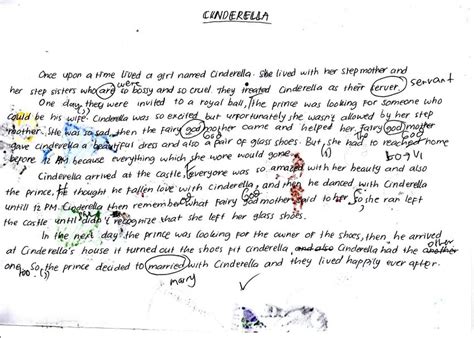 CINDERELLA
Once upon a time lived a girl named Cinderella. She lived with her stepmother and
were
her step sisters who are so bossy and so cruel. They treated Cinderella as their server. servant
One day, they were invited to a royal ball, the prince was looking for someone who
could be his wife. Cinderella was so excited but unfortunately she wasn't allowed by her step
mother. She was so sad, then the fairy godmother came and helped her. Fairy godmother
gave cinderella a beautiful dress and also a pair of glass shoes. But, she had to reached home
before 12 PM because everything which she wore would gone.
Cinderella arrived at the castle, everyone was so amazed with her beauty and also
the prince, he thought he fallen love with cinderella, and then he danced with Cinderella
until 12 PM. Cinderella then remember what fairy Godmother said to her, so she ran left
the castle until didn't recognize that she left her glass shoes.
In the next day the prince was looking for the owner of the shoes, then he arrived
at Cinderella's house it turned out the shoes fit cinderella, and also Cinderella had the another
other
one too. So, the prince decided to married with Cinderella and they lived happily ever after.
marry